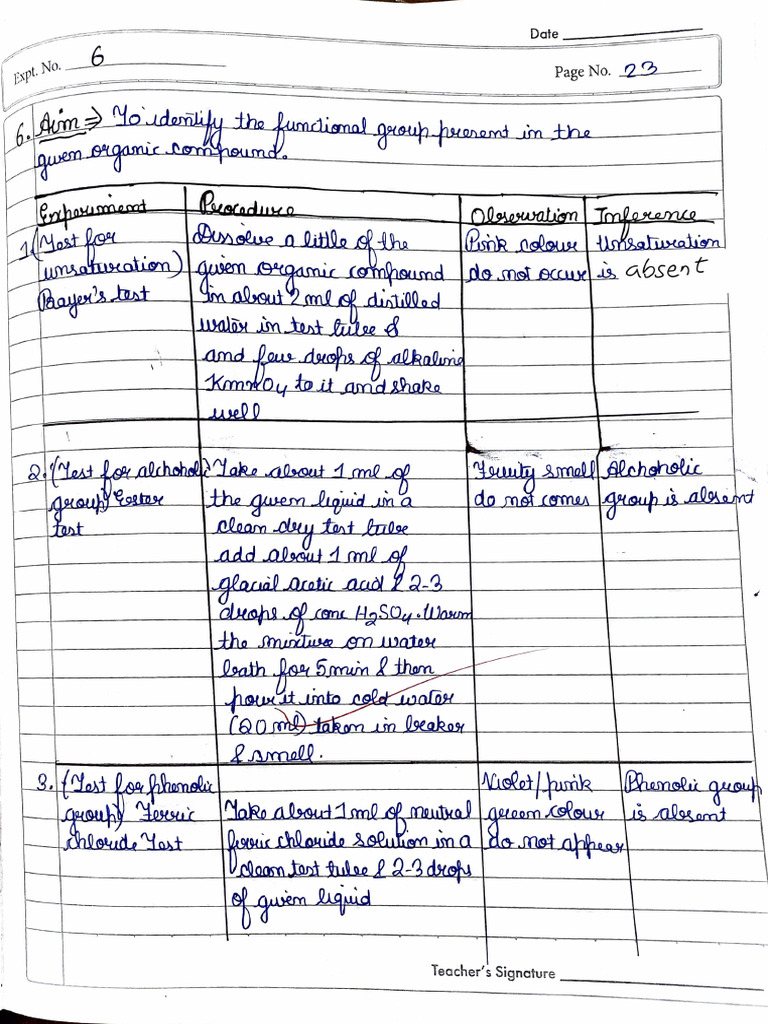 Date
Expt. No. 6
Page No. 23
6. Aim ⇒ To identify the functional group present in the
given organic compound.
Experiment
Procedure
Observation
Inference
1. (Test for
unsaturation)
Bayer's test
Dissolve a little of the
given organic compound
in about 2 ml of distilled
water in test tube &
and few drops of alkaline
KmnO4 to it and shake
well
Pink colour
do not occur
Unsaturation
is absent
2. (Test for alchoholic
group) Eester
test
Take about 1 ml of
the given liquid in a
clean dry test tube
add about 1 ml of
glacial acetic acid & 2-3
drops of conc H2SO4. Warm
the mixture on water
bath for 5 min & then
pour it into cold water
(20 ml) taken in beaker
& smell.
Fruity smell
do not comes
Alchoholic
group is absent
3. (Test for phenolic
group) Ferric
chloride Test
Take about 1 ml of neutral
ferric chloride solution in a
clean test tube & 2-3 drops
of given liquid
Violet/pink
green colour
do not appear
Phenolic group
is absent
Teacher's Signature